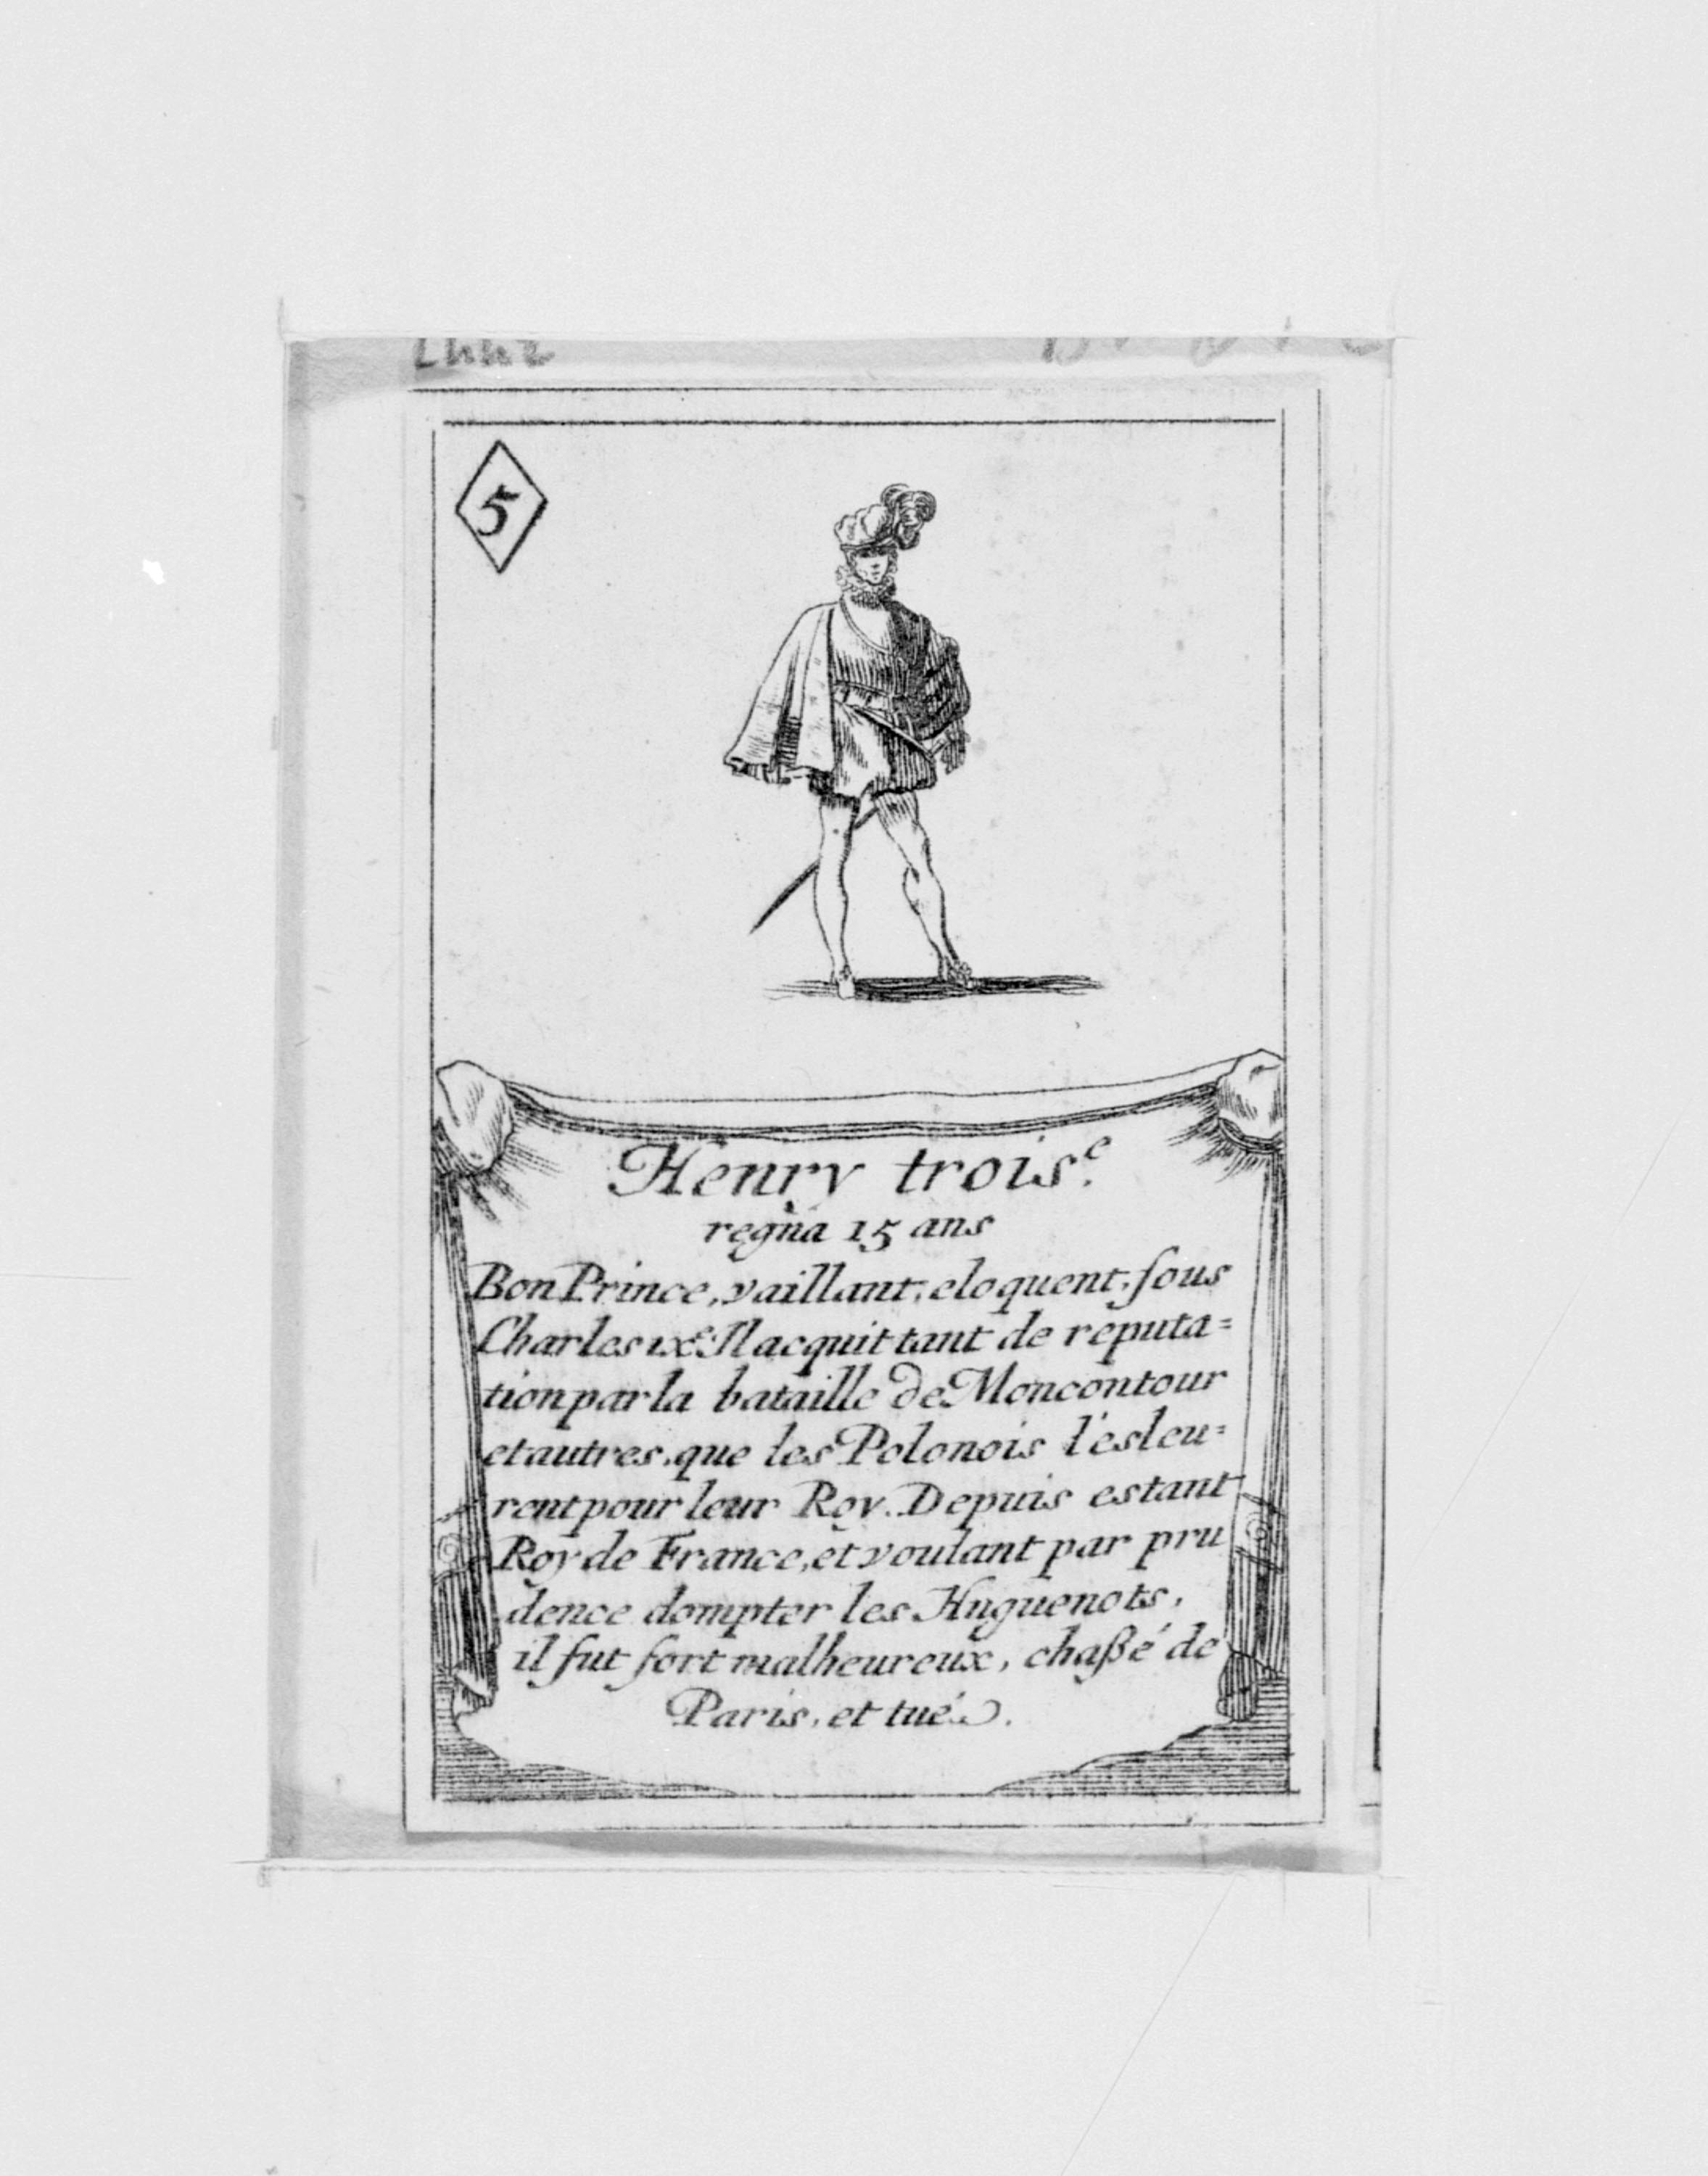 5
Henry trois.e
regna 15 ans
Bon Prince, vaillant, eloquent, ſous
Charles ixe Il acquit tant de reputa=
tion par la bataille de Moncontour
et autres, que les Polonois l'esleu=
rent pour leur Roy. Depuis estant
Roy de France, et voulant par pru
dence dompter les Huguenots,
il fut fort malheureux, chaßé de
Paris, et tué.